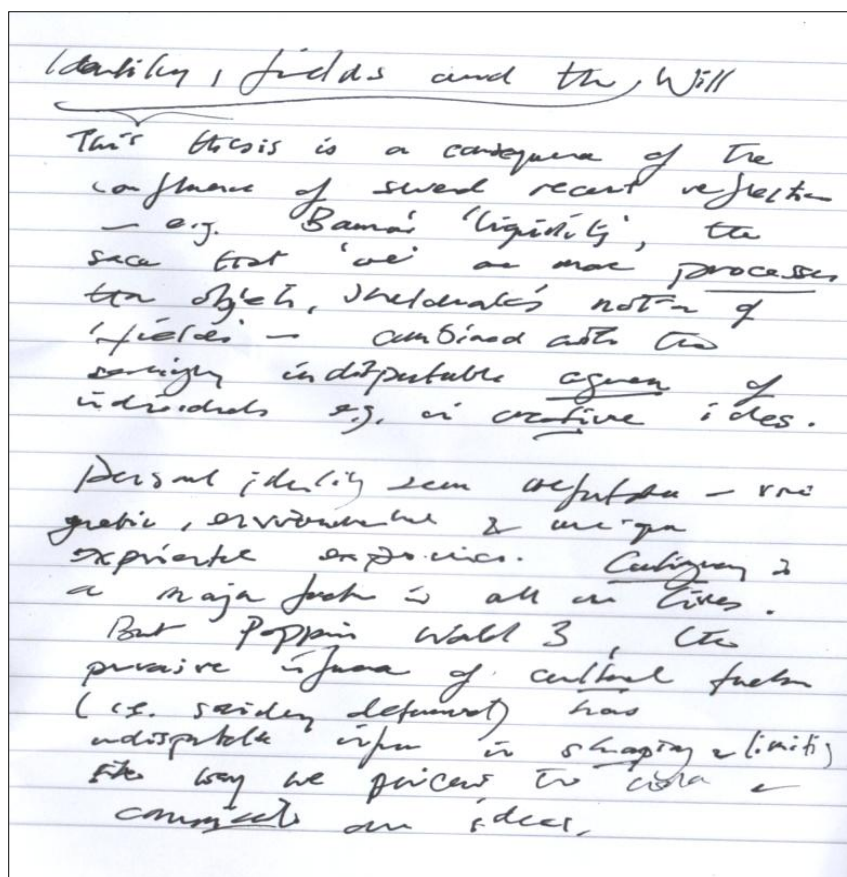 Identity, fields and the Will
This thesis is a consequence of the
confluence of several recent reflection
– e.g. Bauman's 'liquidity', the
idea that 'we' are more processes
than objects, Sheldrake's notion of
'fields' – combined with the
seemingly indisputable agency of
individuals e.g. in creative ideas.
Personal identity seem –
genetic, environmental & unique
experiences. Contingency is
a major factor in all our lives.
But Popper's World 3, the
pervasive influence of cultural factors
(i.e. socially determined) has
indisputable influence in shaping & limiting
the way we perceive the world &
communicate our ideas.